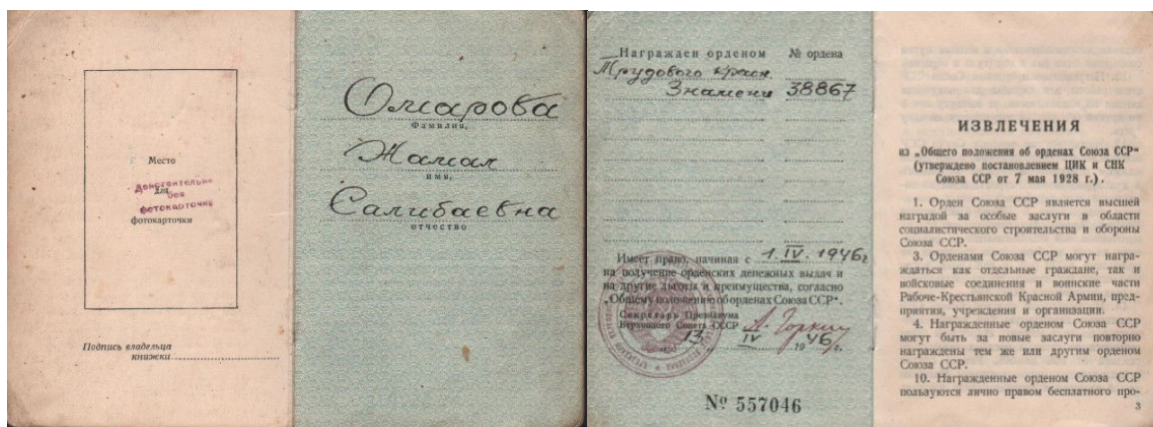 Место
для
фотокарточки
Действительно
без
фотокарточки
Подпись владельца
книжки
Омарова
Фамилия,
Жамал
имя,
Салибаевна
отчество
Награжден орденом № ордена
Трудового Красн.
Знамени 38867
Имеет право, начиная с 1.IV.1946г
на получение орденских денежных выдач и
на другие льготы и преимущества, согласно
„Общему положению об орденах Союза ССР“.
Секретарь Президиума
Верховного Совета СССР А. Горкин
13 IV 1946 г.
№ 557046
ИЗВЛЕЧЕНИЯ
из „Общего положения об орденах Союза ССР“
(утверждено постановлением ЦИК и СНК
Союза ССР от 7 мая 1928 г.).
1. Орден Союза ССР является высшей
наградой за особые заслуги в области
социалистического строительства и обороны
Союза ССР.
3. Орденами Союза ССР могут награ-
ждаться как отдельные граждане, так и
войсковые соединения и воинские части
Рабоче-Крестьянской Красной Армии, пред-
приятия, учреждения и организации.
4. Награжденные орденом Союза ССР
могут быть за новые заслуги повторно
награждены тем же или другим орденом
Союза ССР.
10. Награжденные орденом Союза ССР
пользуются лично правом бесплатного про-
3